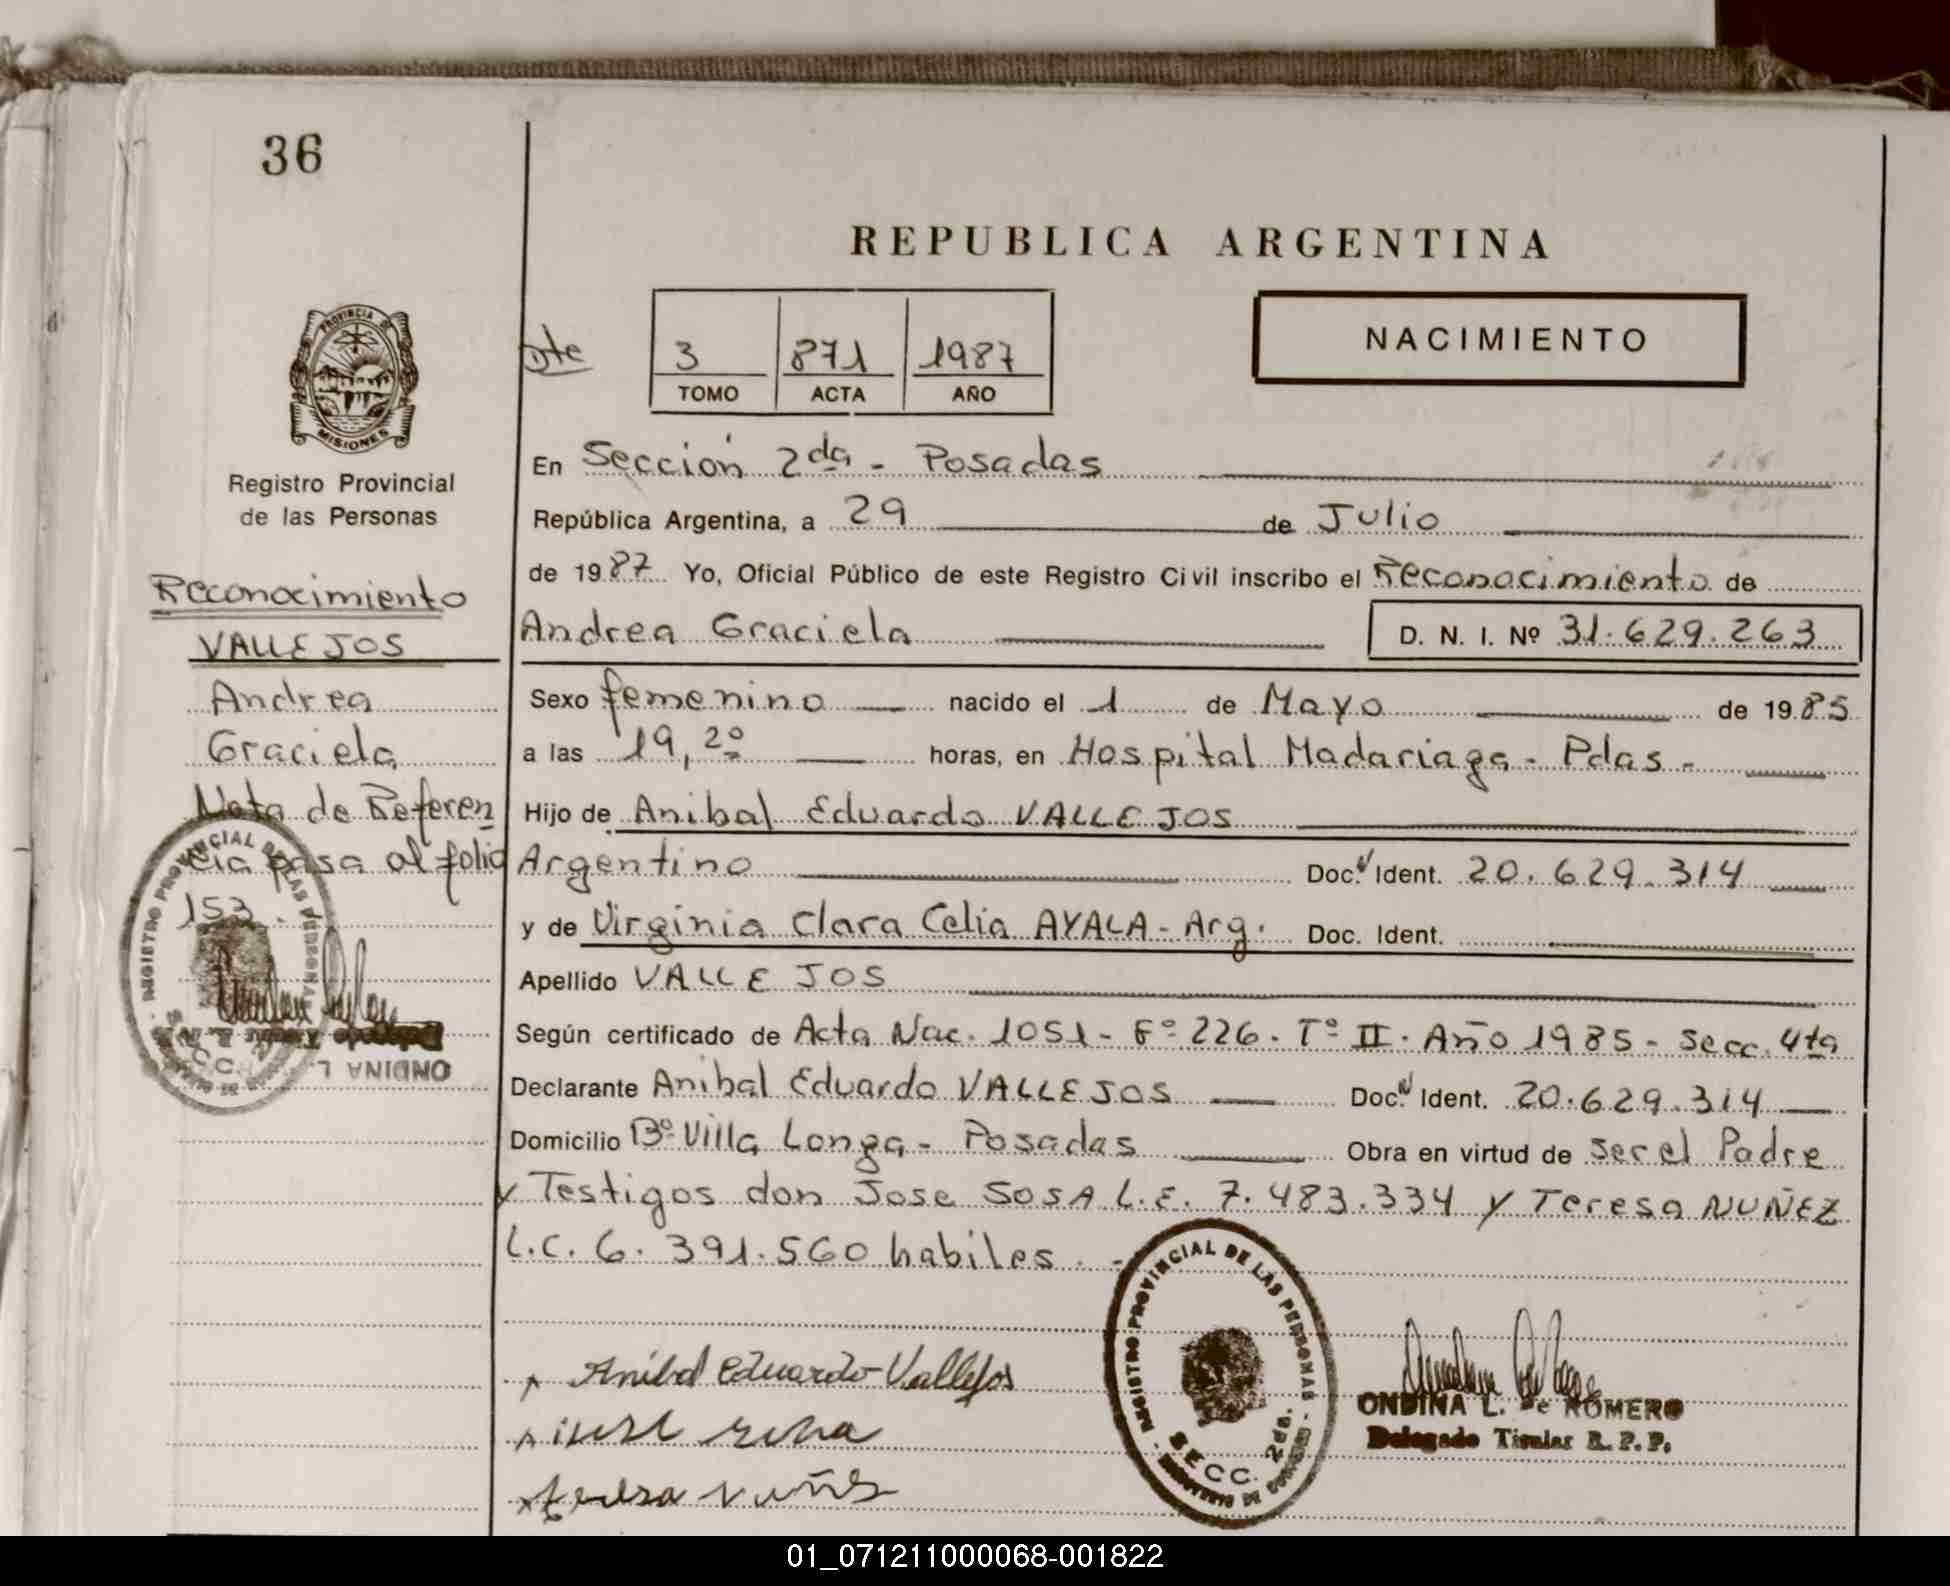 36
REPUBLICA ARGENTINA
NACIMIENTO
Dte
3 871 1987
TOMO ACTA AÑO
PROVINCIA DE MISIONES
Registro Provincial
de las Personas
Reconocimiento
VALLEJOS
Andrea
Graciela
Nota de Referen
cia pasa al folio
153.
REGISTRO PROVINCIAL DE LAS PERSONAS
ONDINA L.
En Sección 2da - Posadas
República Argentina, a 29 de Julio
de 1987 Yo, Oficial Público de este Registro Civil inscribo el Reconocimiento de
Andrea Graciela D. N. I. Nº 31.629.263
Sexo femenino nacido el 1 de Mayo de 1985
a las 19,2º horas, en Hospital Madariaga - Pdas -
Hijo de Anibal Eduardo VALLEJOS
Argentino Doc. Ident. 20.629.314
y de Virginia Clara Celia AYALA - Arg. Doc. Ident.
Apellido VALLEJOS
Según certificado de Acta Nac. 1051 - Fº 226. Tº II. Año 1985 - Secc. 4ta
Declarante Anibal Eduardo VALLEJOS Doc. Ident. 20.629.314
Domicilio Bº Villa Longa - Posadas Obra en virtud de ser el Padre
y Testigos don Jose SOSA L.E. 7.483.334 y Teresa NUÑEZ
L.C. 6.391.560 habiles. -
Anibal Eduardo Vallejos
teresa nuñes
REGISTRO PROVINCIAL DE LAS PERSONAS
SECC. 2da.
ONDINA L. de ROMERO
Delegado Titular R. P. P.
01_071211000068-001822